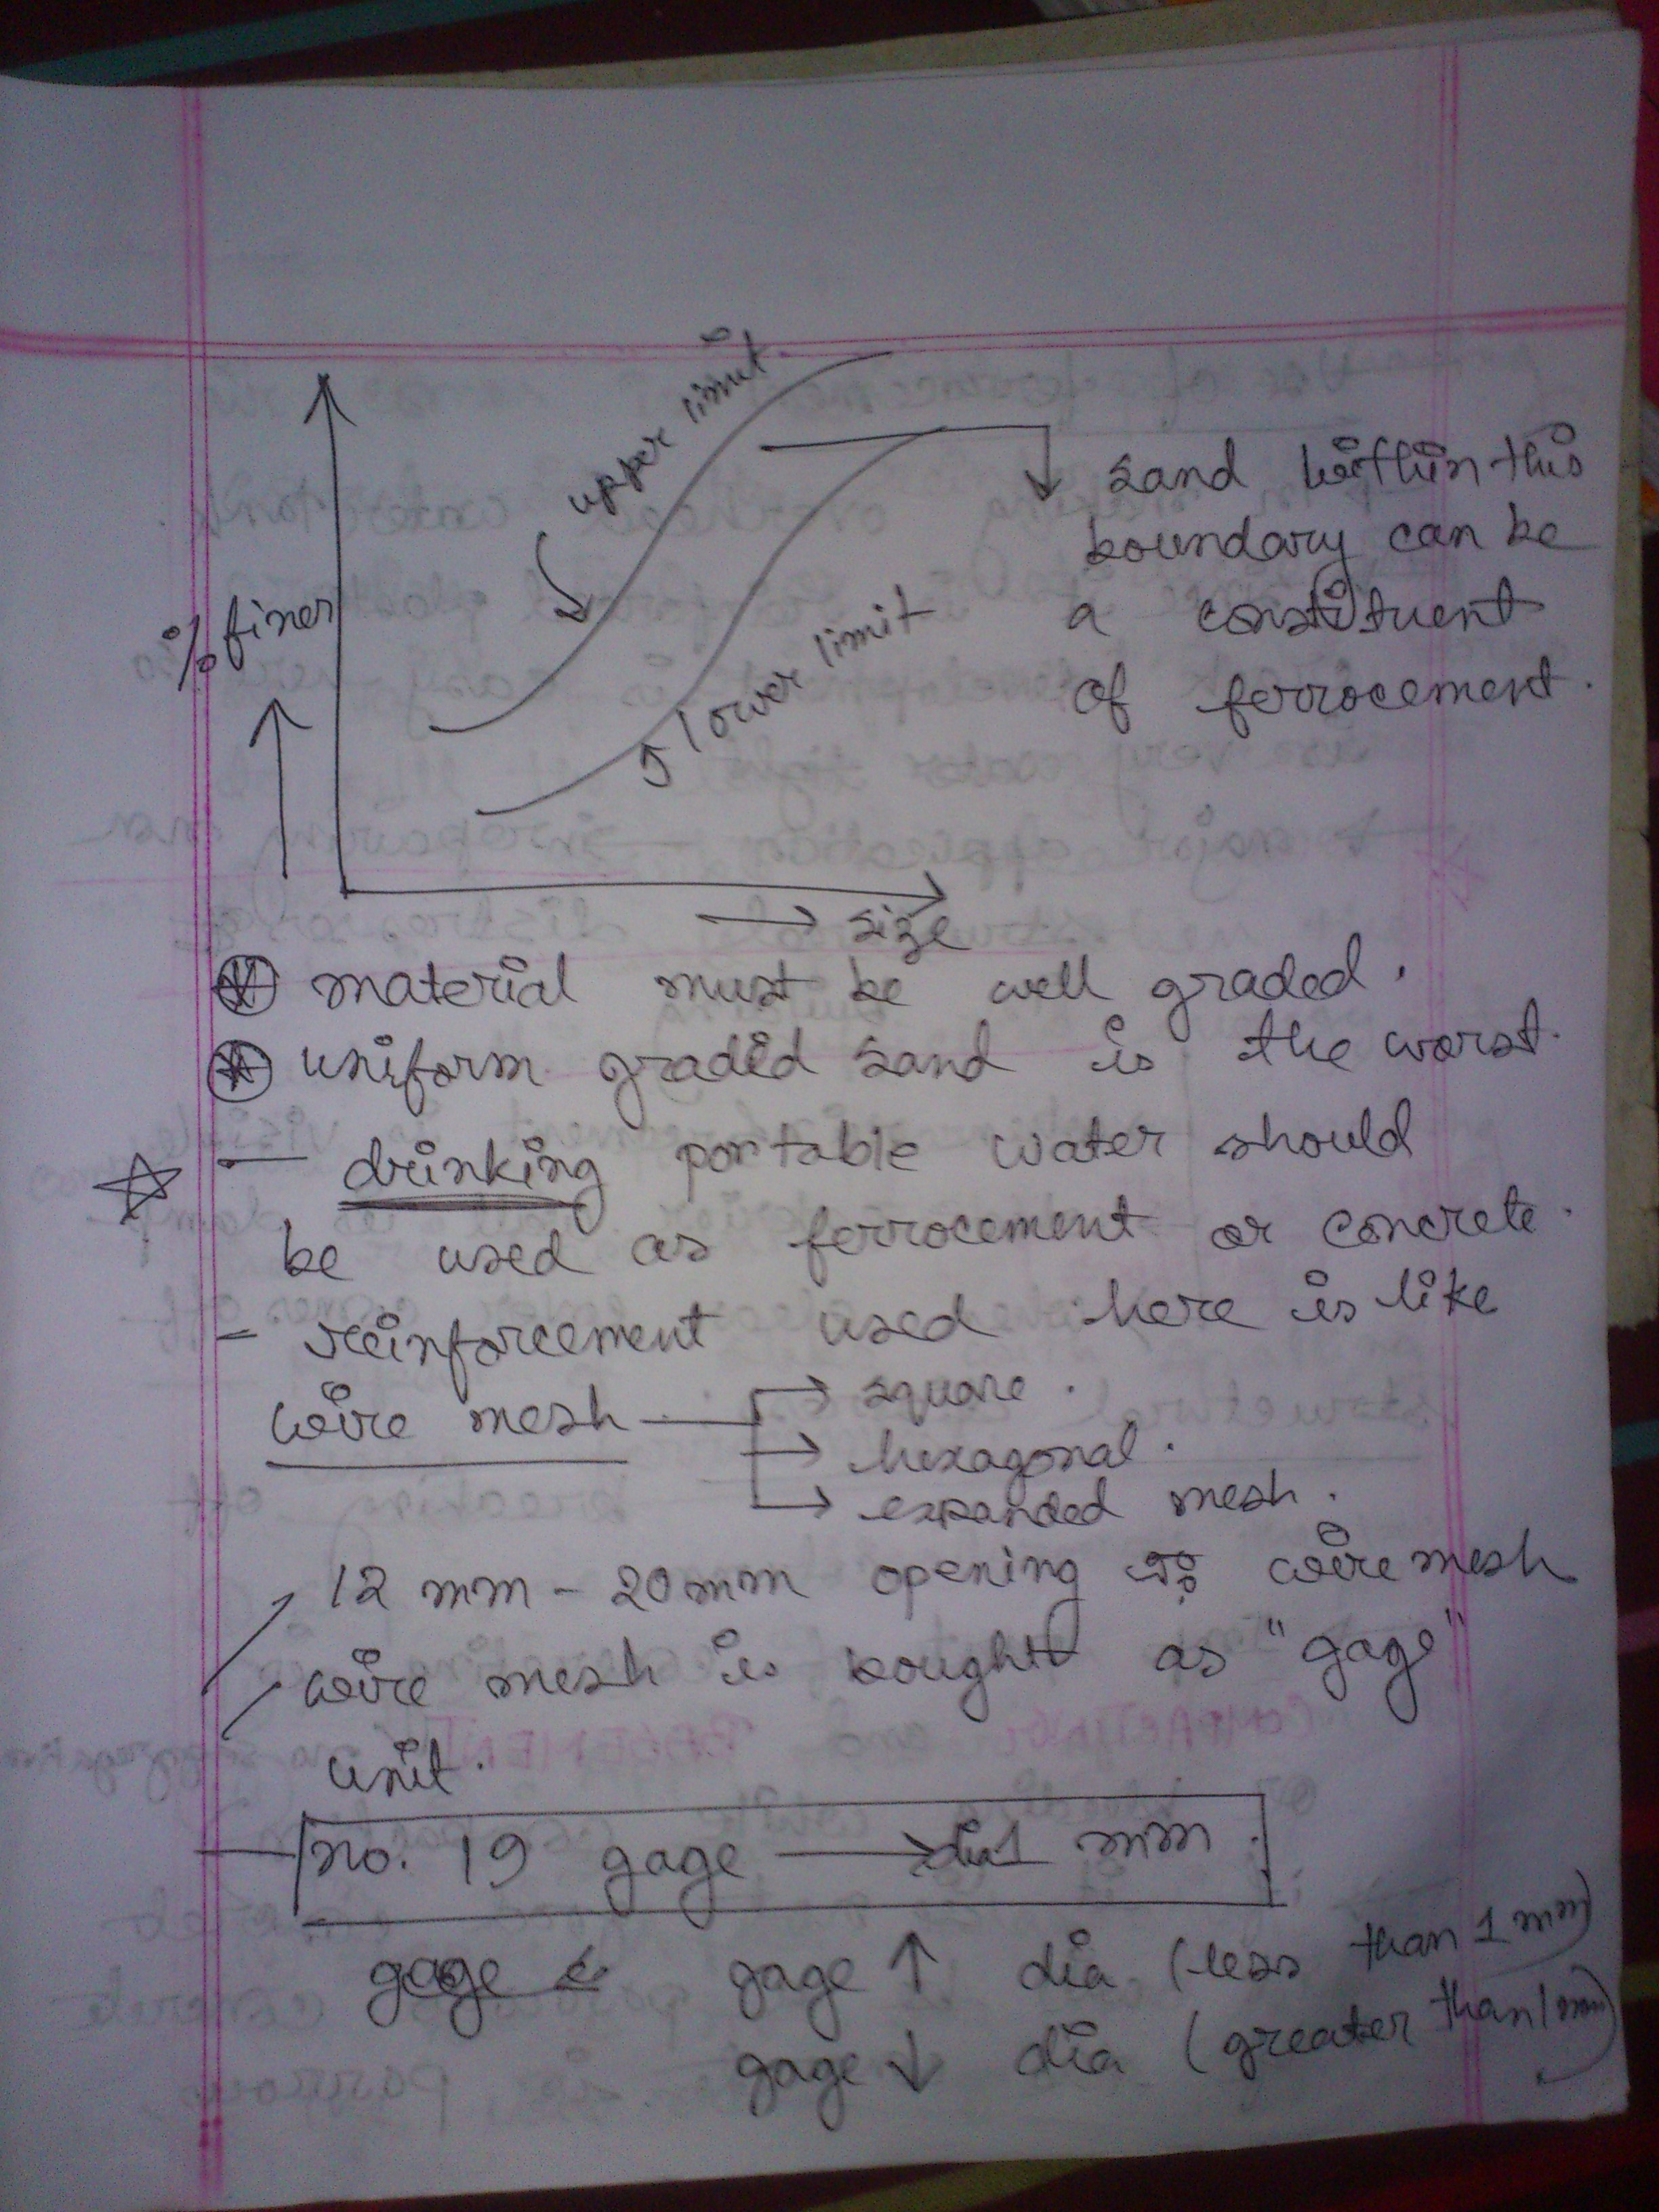 upper limit
% finer
lower limit
sand within this
boundary can be
a constituent
of ferrocement.
→ size
material must be well graded.
uniform graded sand is the worst.
- drinking portable water should
be used as ferrocement or concrete.
- reinforcement used here is like
wire mesh → square.
→ hexagonal.
→ expanded mesh.
12 mm - 20 mm opening wire mesh
wire mesh is bought as "gage"
unit.
no. 19 gage → dia 1 mm.
gage gage ↑ dia (less than 1 mm)
gage ↓ dia (greater than 1 mm)